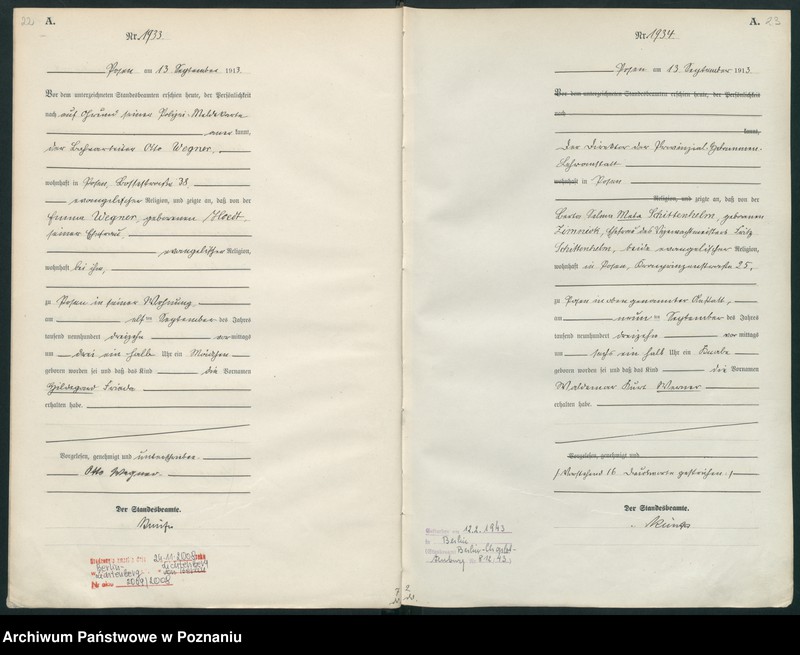 22 A.
Nr. 1933.
Posen am 13 September 1913.
Vor dem unterzeichneten Standesbeamten erschien heute, der Persönlichkeit
nach auf Grund seiner Polizei-Meldekarte
aner kannt,
der Otto Wegner,
wohnhaft in Posen, 38,
evangelischer Religion, und zeigte an, daß von der
Emma Wegner, geborenen
seiner Ehefrau,
evangelischer Religion,
wohnhaft bei ihm,
zu Posen in seiner Wohnung,
am elften September des Jahres
tausend neunhundert dreizehn mittags
um drei ein halb Uhr ein Mädchen
geboren worden sei und daß das Kind die Vornamen
Hildegard Frieda
erhalten habe.
Vorgelesen, genehmigt und unterschrieben
Otto Wegner.
Der Standesbeamte.
24.11.2008
Berlin-
Lichtenberg
Nr aktu 2069/2008
A. 23
Nr. 1934.
Posen am 13 September 1913.
Vor dem unterzeichneten Standesbeamten erschien heute, der Persönlichkeit
nach
kannt,
Der Direktor der Provinzial-Hebammen-
Lehranstalt
wohnhaft in Posen
Religion, und zeigte an, daß von der
Selma Meta Schittenhelm, geborenen
Ehefrau des
Schittenhelm, beide evangelischer Religion,
wohnhaft in Posen, Kronprinzenstraße 25,
zu Posen in oben genannter Anstalt,
am neunten September des Jahres
tausend neunhundert dreizehn vor mittags
um sechs ein halb Uhr ein Knabe
geboren worden sei und daß das Kind die Vornamen
Waldemar Kurt Werner
erhalten habe.
Vorgelesen, genehmigt und
/Vorstehend 16 Druckworte gestrichen./
Der Standesbeamte.
12.2.1943
Berlin
Berlin-Charlot-
tenburg
Archiwum Państwowe w Poznaniu